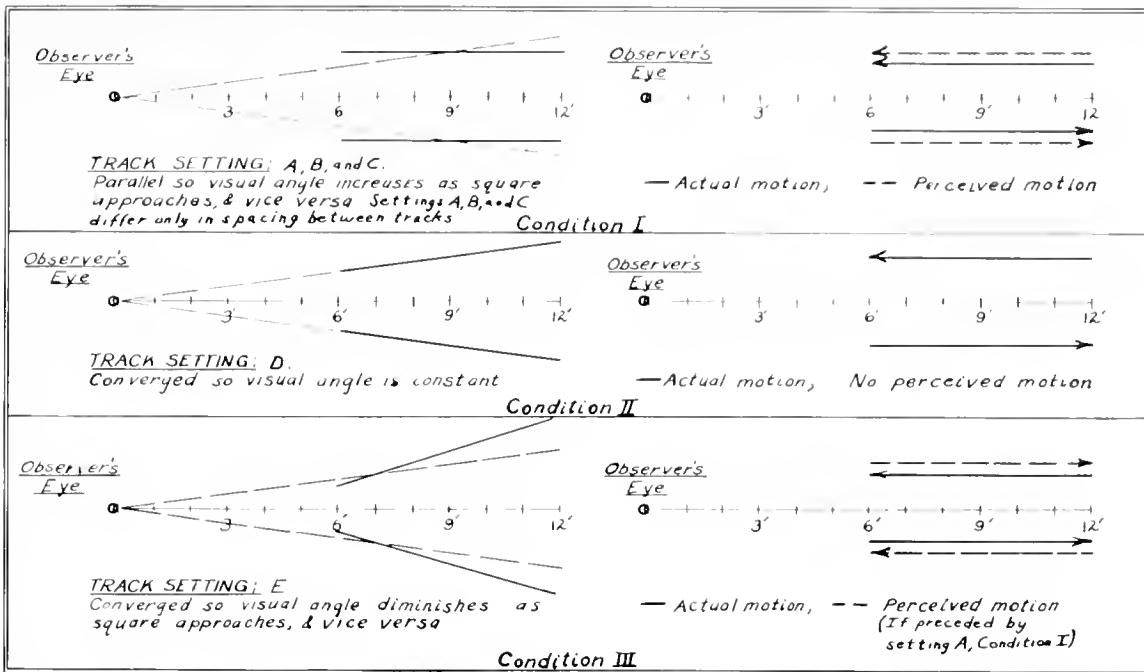 Observer's
Eye
3'
6
9'
12'
TRACK SETTING: A, B, and C.
Parallel so visual angle increases as square
approaches, & vice versa Settings A, B, and C
differ only in spacing between tracks
Observer's
Eye
3'
6
9'
12
— Actual motion, -- Perceived motion
Condition I
Observer's
Eye
3'
6'
9'
12'
TRACK SETTING: D.
Converged so visual angle is constant
Observer's
Eye
3'
6'
9'
12'
— Actual motion, No perceived motion
Condition II
Observer's
Eye
3'
6'
9'
12'
TRACK SETTING: E
Converged so visual angle diminishes as
square approaches, & vice versa
Observer's
Eye
3'
6'
9'
12'
— Actual motion, -- Perceived motion
(If preceded by
setting A, Condition I)
Condition III